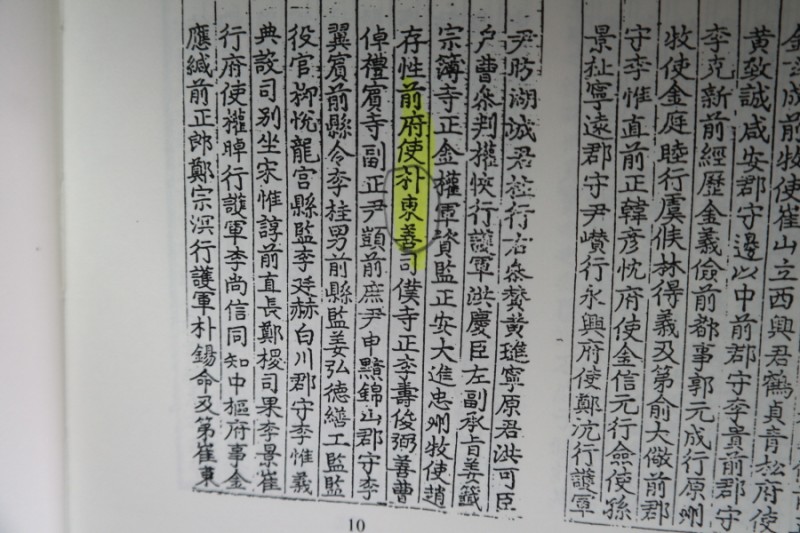 成前牧使崔山立西興君鶴貞青松府使
黄致誠咸安郡守邊以中前郡守李貴前郡守
李克新前經歷金義儉前都事郭元成行原州
牧使金庭睦行虞候林得義及第俞大儆前郡
守李惟直前正韓彦忱府使金信元行僉使孫
景祉寧遠郡守尹巑行永興府使鄭沆行護軍
尹昉湖城君柱行右叅賛黃璡寧原君洪可臣
戶曹叅判權悏行護軍洪慶臣左副承旨姜籤
宗簿寺正金權軍資監正安大進忠州牧使趙
存性前府使朴東善司僕寺正李壽俊弼善曹
倬禮賓寺副正尹顗前庶尹申黯錦山郡守李
翼賓前縣令李桂男前縣監姜弘德繕工監監
役官柳悅龍宮縣監李廷赫白川郡守李惟義
典設司別坐宋惟諄前直長鄭㮨司果李景崔
行府使權晫行護軍李尚信同知中樞府事金
應緘前正郎鄭宗溟行護軍朴錫命及第崔東
10